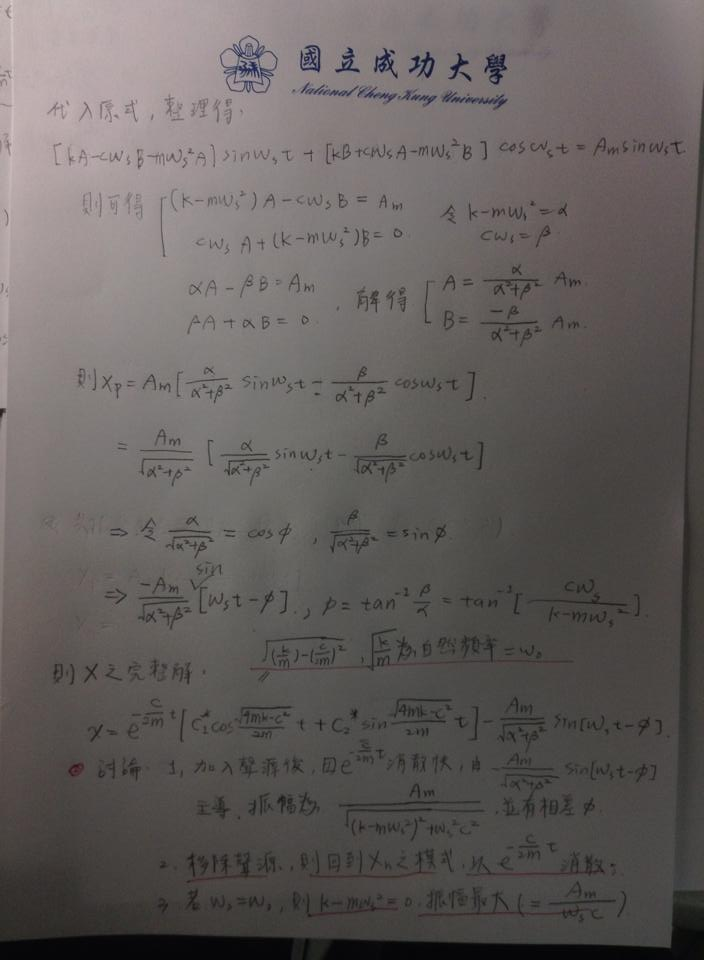 國立成功大學
National Cheng Kung University
代入原式，整理得，
[kA-cwₛB-mwₛ²A] sinwₛt + [kB+cwₛA-mwₛ²B] coswₛt = Am sinwₛt.
則可得 [(k-mwₛ²)A-cwₛB = Am 令 k-mwₛ²=α
cwₛA+(k-mwₛ²)B=0. cwₛ=β
αA-βB=Am , 解得 [ A = α/(α²+β²) Am.
βA+αB=0. B = -β/(α²+β²) Am.
則 Xp = Am[α/(α²+β²) sinwₛt - β/(α²+β²) coswₛt].
= Am/√(α²+β²) [α/√(α²+β²) sinwₛt - β/√(α²+β²) coswₛt]
⇒ 令 α/√(α²+β²) = cosφ , β/√(α²+β²) = sinφ.
⇒ -Am/√(α²+β²) sin[wₛt-φ]. , φ=tan⁻¹ β/α = tan⁻¹[cwₛ/(k-mwₛ²)].
則X之完整解. √((k/m)-(c/2m)²) , √(k/m)為自然頻率=w₀
x=e^(-c/2m t)[C₁*cos √(4mk-c²)/2m t + C₂*sin √(4mk-c²)/2m t] - Am/√(α²+β²) sin[wₛt-φ].
討論. 1, 加入聲源後, 因e^(-c/2m t)消散快, 由 Am/√(α²+β²) sin[wₛt-φ]
主導. 振幅為 Am/√((k-mwₛ²)²+wₛ²c²) , 並有相差φ.
2. 移除聲源, 則回到Xh之模式, 以e^(-c/2m t) 消散。
3 若wₛ=w₀, 則k-mwₛ²=0. 振幅最大(= Am/wₛc)